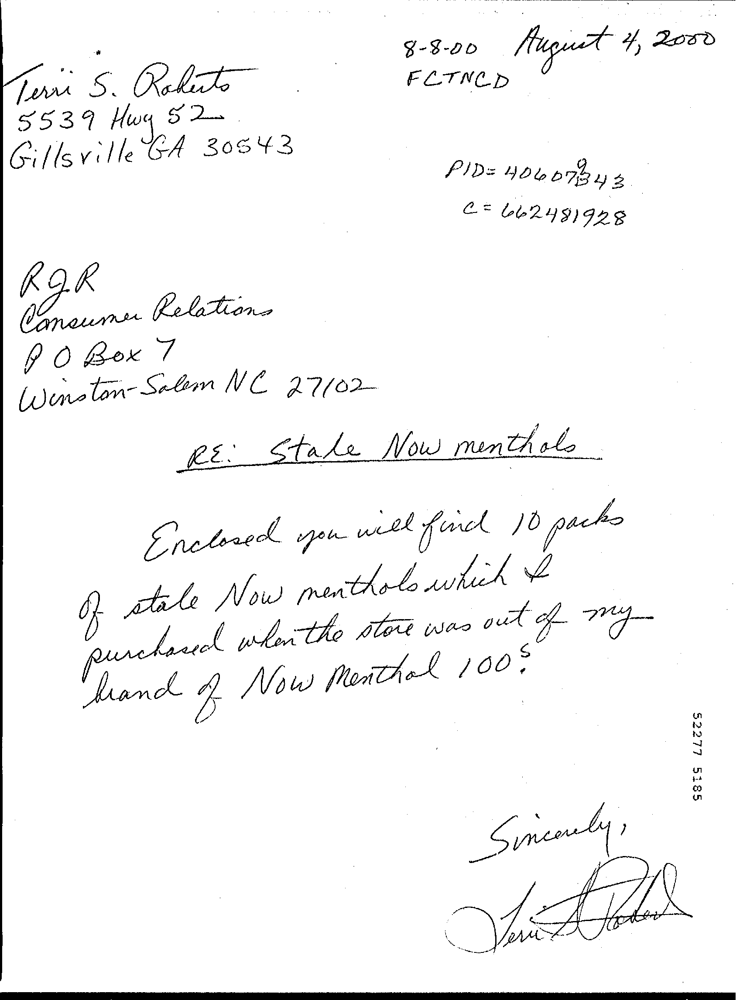 8-8-00 August 4, 2000
FCTNCD
Terri S. Roberts
5539 Hwy 52
Gillsville GA 30543
PID= 406079343
C = 662481928
RJR
Consumer Relations
P O Box 7
Winston-Salem NC 27102
RE: Stale Now menthols
Enclosed you will find 10 packs
of stale Now menthols which I
purchased when the store was out of my
brand of Now Menthol 100s.
52277 5185
Sincerely,
Terri S Roberts